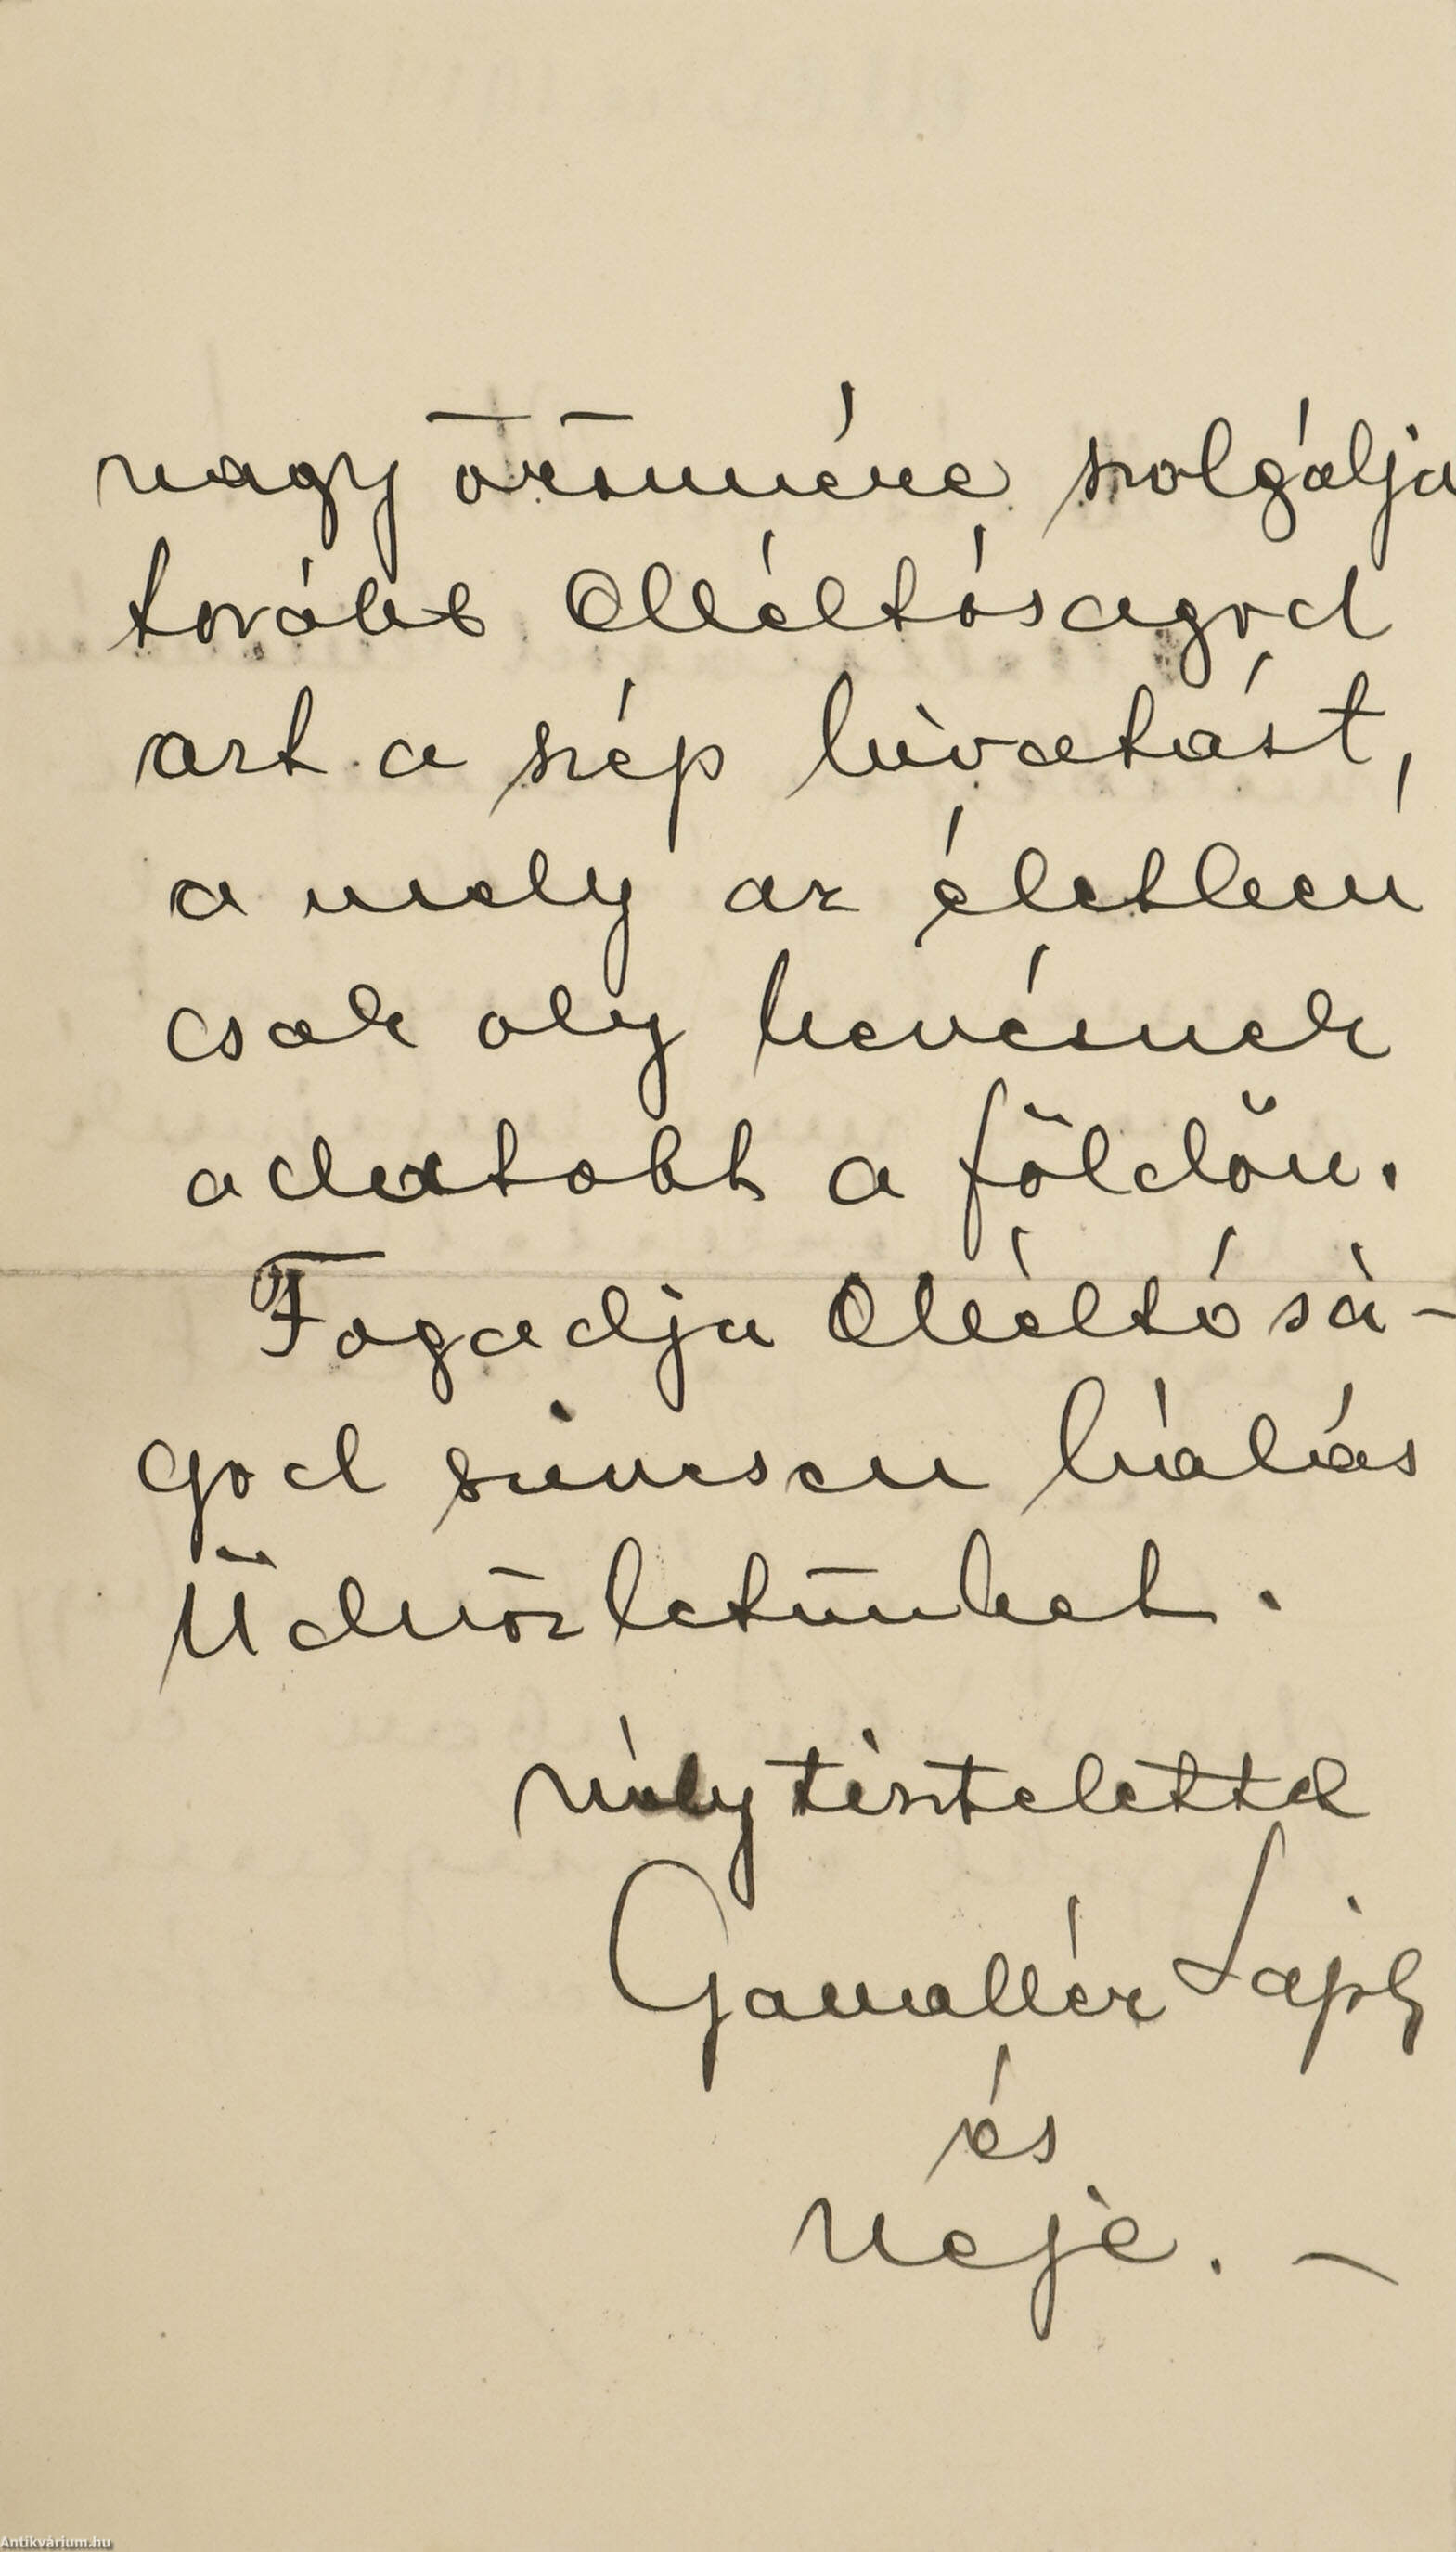 nagy örömére szolgálja
tovább Méltóságod
azt a szép hivatást,
a mely az életben
csak oly kevésnek
adatott a földön.
Fogadja Méltósá-
god szives hálás
Üdvözletünket.
mély tisztelettel
Gamallér Lajos
és
neje. –
Antikvárium.hu